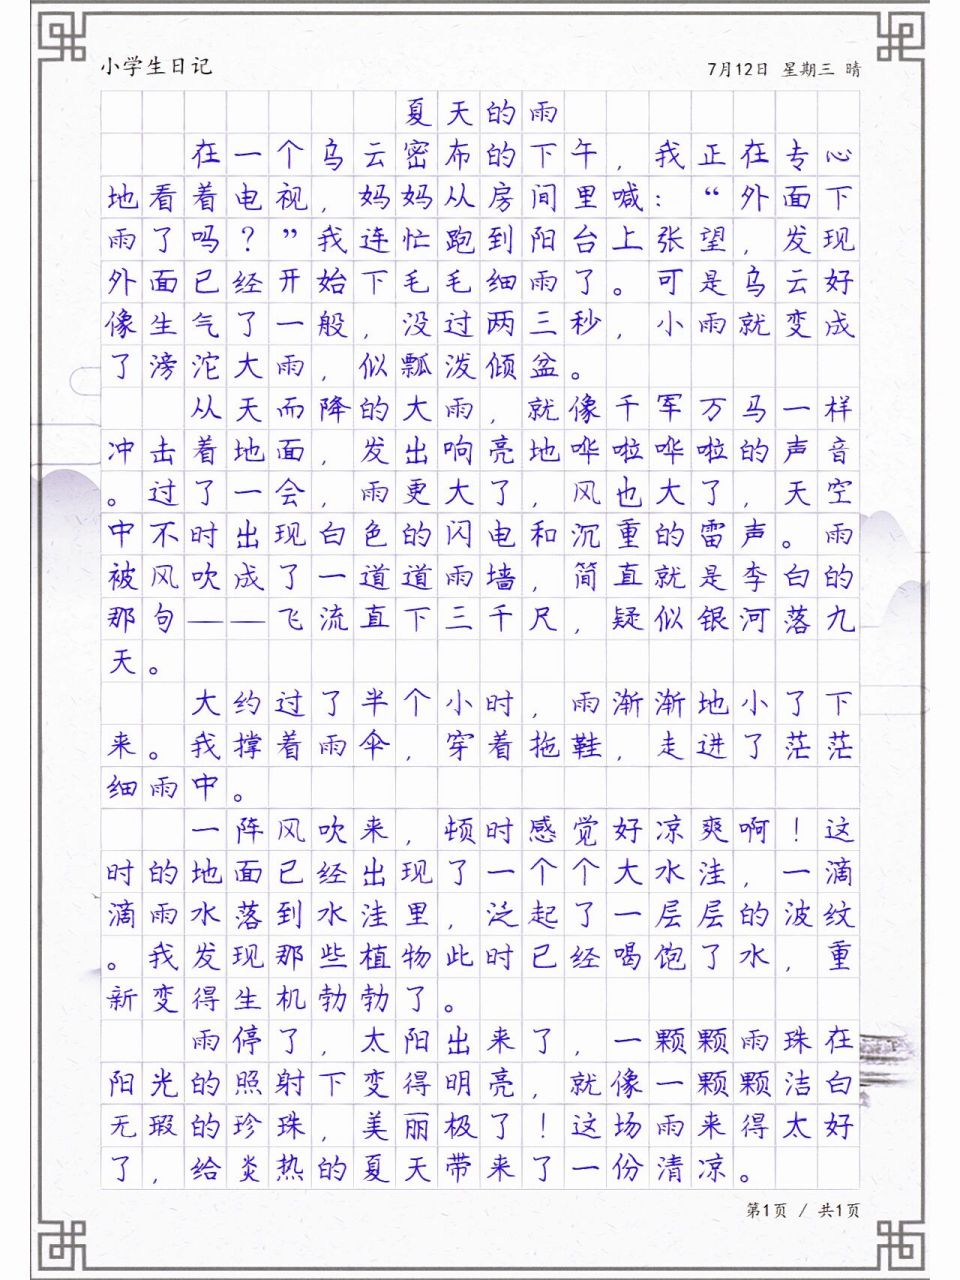 小学生日记
7月12日 星期三 晴
夏天的雨
在一个乌云密布的下午，我正在专心
地看着电视，妈妈从房间里喊：“外面下
雨了吗？”我连忙跑到阳台上张望，发现
外面已经开始下毛毛细雨了。可是乌云好
像生气了一般，没过两三秒，小雨就变成
了滂沱大雨，似瓢泼倾盆。
从天而降的大雨，就像千军万马一样
冲击着地面，发出响亮地哗啦哗啦的声音
。过了一会，雨更大了，风也大了，天空
中不时出现白色的闪电和沉重的雷声。雨
被风吹成了一道道雨墙，简直就是李白的
那句——飞流直下三千尺，疑似银河落九
天。
大约过了半个小时，雨渐渐地小了下
来。我撑着雨伞，穿着拖鞋，走进了茫茫
细雨中。
一阵风吹来，顿时感觉好凉爽啊！这
时的地面已经出现了一个个大水洼，一滴
滴雨水落到水洼里，泛起了一层层的波纹
。我发现那些植物此时已经喝饱了水，重
新变得生机勃勃了。
雨停了，太阳出来了，一颗颗雨珠在
阳光的照射下变得明亮，就像一颗颗洁白
无瑕的珍珠，美丽极了！这场雨来得太好
了，给炎热的夏天带来了一份清凉。
第1页 / 共1页